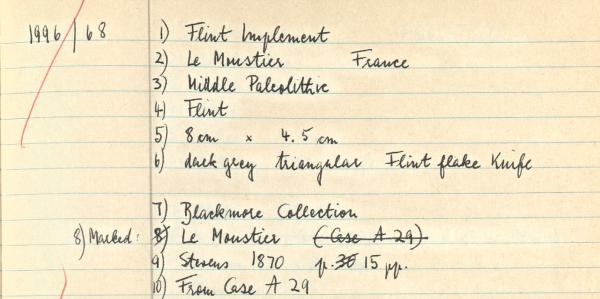 1996/68 1) Flint Implement
2) Le Moustier France
3) Middle Paleolithic
4) Flint
5) 8 cm x 4.5 cm
6) dark grey triangular Flint flake Knife
7) Blackmore Collection
8) Marked: 8) Le Moustier (Case A 29)
9) Stevens 1870 p. 35 15 pp.
10) From Case A 29